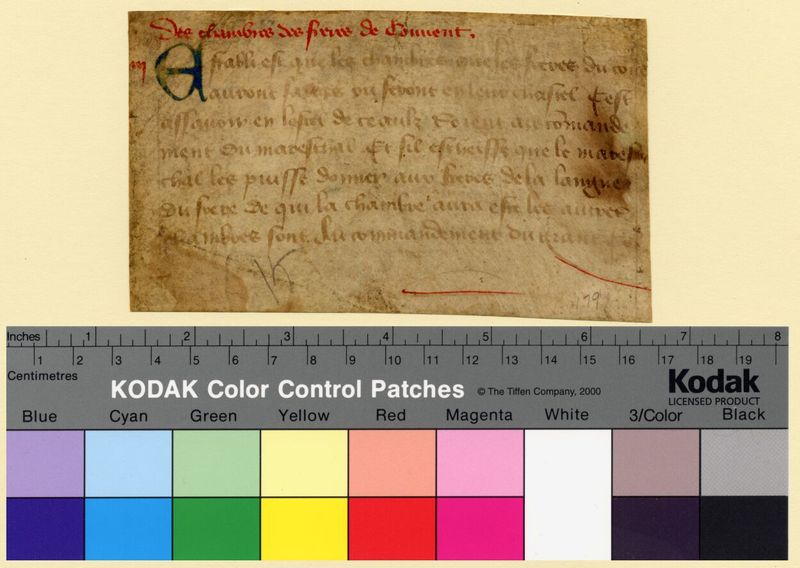 Des chambres des freres de Convent.
iij
Establi est que les chambres que les freres du co
auront faites ou feront en leur chastel Cest
assavoir en lostel de ceaulz soient au comande
ment du mareschal Et sil est heisse que le mares
chal les puisse donner aux freres de la langue
du frere de qui la chambre aura este les autres
chambres sont du commandement du grant
K
479
Inches 1 2 3 4 5 6 7 8
Centimetres 1 2 3 4 5 6 7 8 9 10 11 12 13 14 15 16 17 18 19
KODAK Color Control Patches © The Tiffen Company, 2000 Kodak
LICENSED PRODUCT
Blue Cyan Green Yellow Red Magenta White 3/Color Black